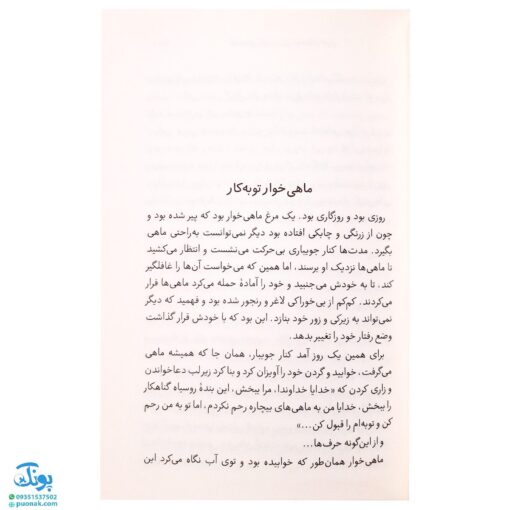 ماهی‌خوار توبه‌کار
روزی بود و روزگاری بود. یک مرغ ماهی‌خوار بود که پیر شده بود و
چون از زرنگی و چابکی افتاده بود دیگر نمی‌توانست به‌راحتی ماهی
بگیرد. مدت‌ها کنار جویباری بی‌حرکت می‌نشست و انتظار می‌کشید
تا ماهی‌ها نزدیک او برسند. اما همین که می‌خواست آن‌ها را غافلگیر
کند، تا به خودش می‌جنبید و خود را آمادهٔ حمله می‌کرد ماهی‌ها فرار
می‌کردند. کم‌کم از بی‌خوراکی لاغر و رنجور شده بود و فهمید که دیگر
نمی‌تواند به زیرکی و زور خود بنازد. این بود که با خودش قرار گذاشت
وضع رفتار خود را تغییر بدهد.
برای همین یک روز آمد کنار جویبار، همان جا که همیشه ماهی
می‌گرفت، خوابید و گردن خود را آویزان کرد و بنا کرد زیر لب دعا خواندن
و زاری کردن که «خدایا خداوندا، مرا ببخش، این بندهٔ روسیاه گناهکار
را ببخش، خدایا من به ماهی‌های بیچاره رحم نکردم، اما تو به من رحم
کن و توبه‌ام را قبول کن...»
و از این‌گونه حرف‌ها...
ماهی‌خوار همان‌طور که خوابیده بود و توی آب نگاه می‌کرد این
پونک
09351537502
puonak.com